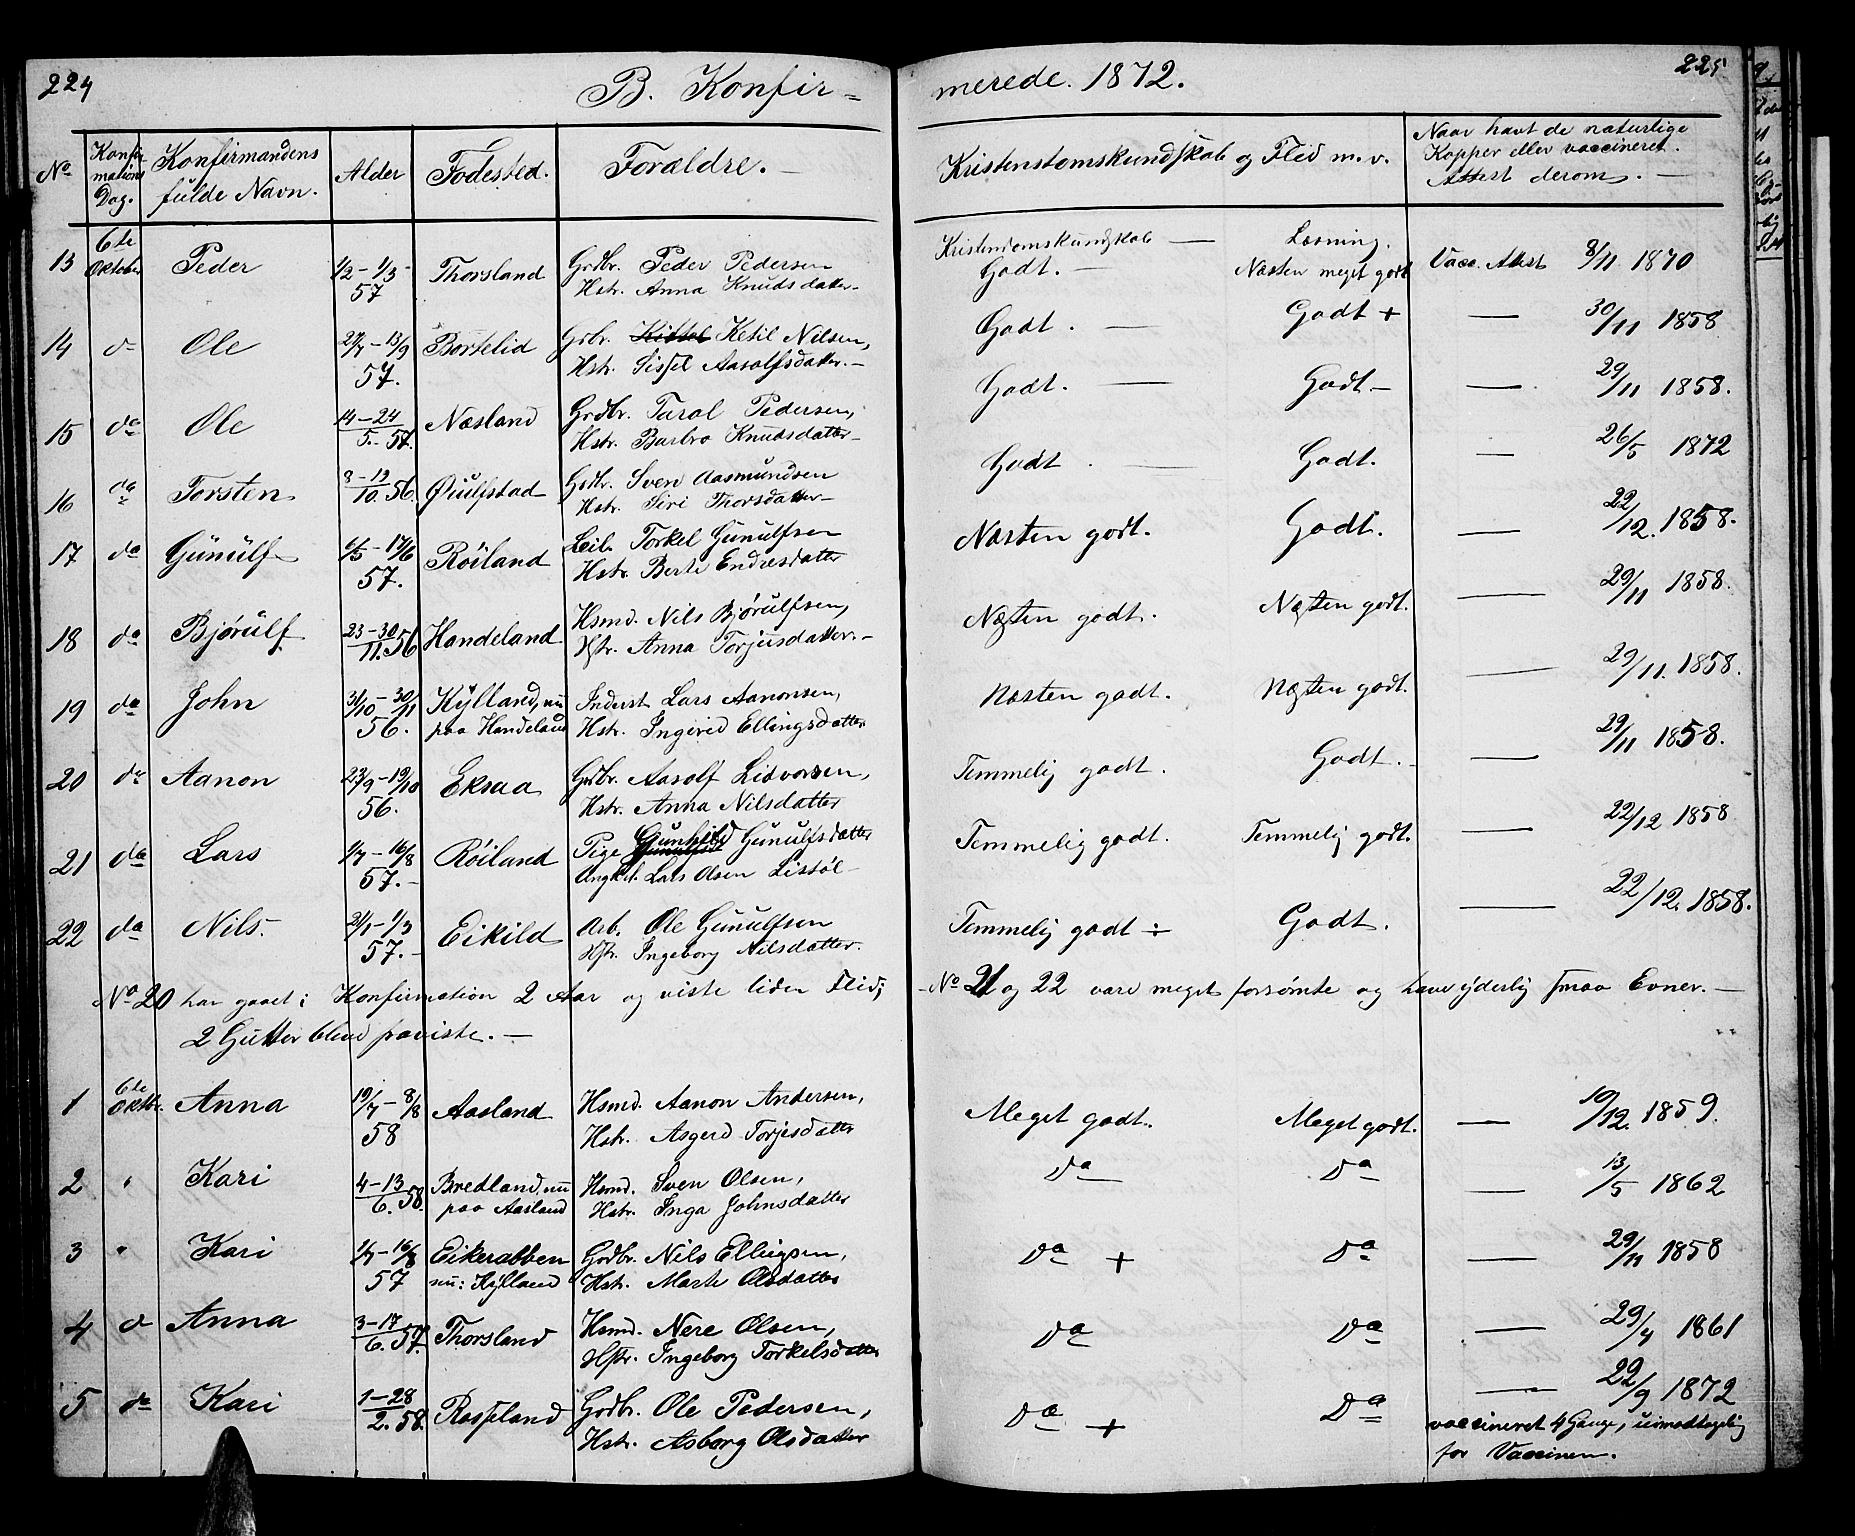 224
B. Konfir-
merede. 1872.
225
No
Konfir-
mations
Dag.
Konfirmandens
fulde Navn.
Alder
Fødested.
Forældre.
Kristendomskundskab og Flid m.v.
Naar havt de naturlige
Kopper eller vaccineret.
Attest derom.
13 6te Oktober Peder 1/2-1/3 57 Thorsland Grdbr. Peder Pedersen
Hstr. Anna Knudsdatter
Kristendomskundskab — Læsning.
Godt. — Næsten meget godt Vacc. Attest 8/11 1870
14 d Ole 27/7-13/9 57. Børtelid Grbr. Kittel Ketil Nilsen,
Hstr. Sissel Aasolfsdatter.
Godt. — Godt + — 30/11 1858
15 do Ole 14-24/5. 57. Næsland Grdbr. Tarol Pedersen,
Hstr. Barbro Knudsdatter
Godt. — Godt — — 29/11 1858.
16 do Torsten 8-19/10. 56. Øiulfstad Grdbr. Sven Aasmundsen
Hstr. Siri Thorsdatter
Godt. — Godt. — 26/5 1872
17 do Gunulf 6/5-17/6 57. Røiland Leil. Torkel Gunulfsen
Hstr. Berte Endresdatter
Næsten godt. Godt. — 22/12. 1858.
18 do Bjørulf 23-30/11. 56 Handeland Hsmd. Nils Bjørulfsen,
Hstr. Anna Torjusdatter.
Næsten godt. Næsten godt. — 29/11 1858.
19 do John 31/10-30/11 56. Kylland, nu
paa Handeland Inderst Lars Aanonsen,
Hstr. Ingerid Ellingsdatter
Næsten godt. Næsten godt. — 29/11. 1858.
20 do Aanon 23/9-19/10 56. Eksaa Grdbr. Aasolf Lidvorsen,
Hstr. Anna Nilsdatter
Temmelig godt. Godt. — 29/11 1858.
21 do Lars 1/7-16/8 57. Røiland Pige Gunhild Gunulfsdatter
Ungkrl. Lars Olsen Listøl
Temmelig godt. Temmelig godt. — 22/12 1858
22 do Nils. 21/1-1/3 57. Eikild Arb. Ole Gunulfsen
Hstr. Ingeborg Nilsdatter.
Temmelig godt ÷ Godt. — 22/12. 1858.
No 20 har gaaet i Konfirmation 2 Aar og viste liden Flid;
No 21 og 22 vare meget forsømte og have yderlig smaa Evner. —
2 Gutter bleve paaviste. —
1 6te Oktbr. Anna 19/7-8/8 58 Aasland Hsmd. Aanon Andersen,
Hstr. Asgerd Torjesdatter
Meget godt. Meget godt. — 10/12. 1859.
2 " Kari 4-13/6. 58. Bredland, nu
paa Aasland Hsmd. Sven Olsen,
Hstr. Inga Johnsdatter
Do Do — 13/5 1862
3 " Kari 1/7-16/8 57 Eikerabben
nu: Kylland Grdbr. Nils Ellingsen,
Hstr. Marte Olsdatter
Do + Do — 29/11 1858
4 d Anna 3-17/6. 57. Thorsland Hsmd. Nere Olsen,
Hstr. Ingeborg Torkelsdatter
Do Do — 29/4 1861
5 do Kari 1-28/2. 58. Rossland Grdbr. Ole Pedersen,
Hstr. Asborg Olsdatter
Do + Do — 22/9 1872
vaccineret 4 Gange, uimodtagelig
for Vaccinen.